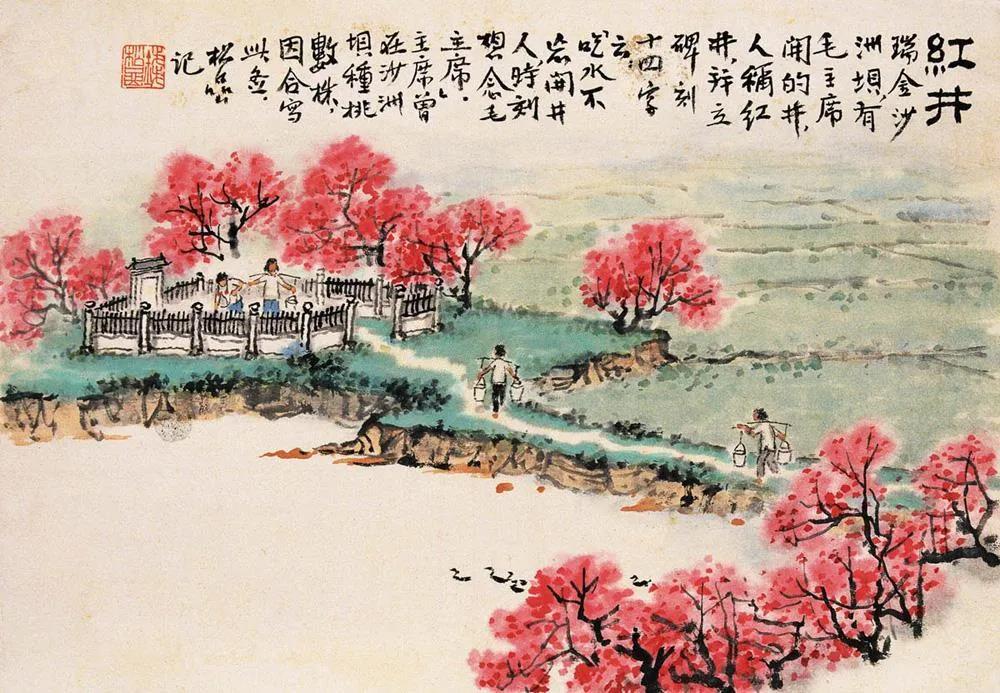 紅井
瑞金沙
洲垻,有
毛主席
開的井,
人稱紅
井,并立
碑刻
十四字
云:
吃水不
忘開井
人,時刻
想念毛
主席。
主席曾
在沙洲
垻種桃
數株,
因合寫
此意。
松喦
记